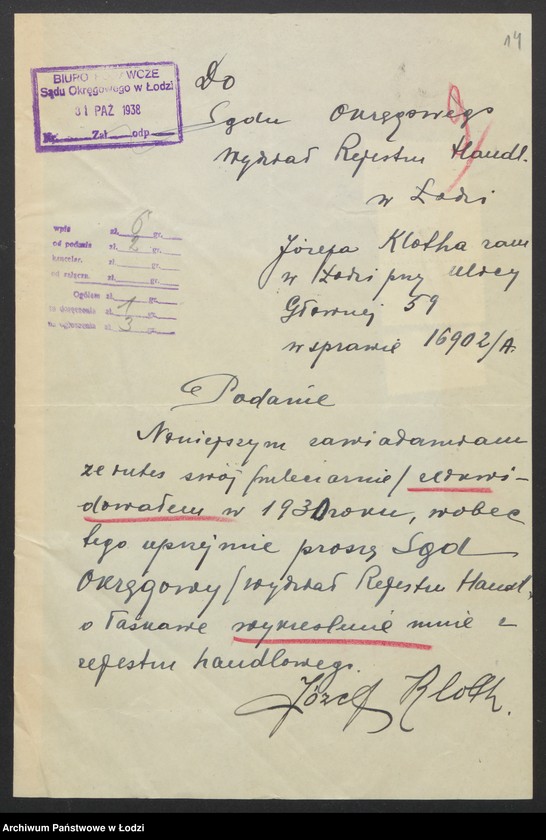 14
BIURO PODAWCZE
Sądu Okręgowego w Łodzi
31 PAŹ 1938
Nr. Zał odp
Do
Sądu Okręgowego
Wydział Rejestru Handl.
w Łodzi
wpis zł. 6 gr.
od podanie zł. 2 gr.
kancelar. zł. gr.
od załącz. zł. gr.
Ogółem zł. gr.
za doręczenia zł. 1 gr.
za ogłoszenia zł. 3 gr.
Józefa Klotha zam
w Łodzi przy ulicy
Głównej 59
w sprawie 16902/A.
Podanie
Niniejszym zawiadamiam
że interes swój /mleciarnie/ zlikwi-
dowałem w 1931 roku, wobec
tego uprzejmie proszę Sąd
Okręgowy /wydział Rejestru Handl.
o łaskawe wykreślenie mnie z
rejestru handlowego.
Józef Kloth.
Archiwum Państwowe w Łodzi